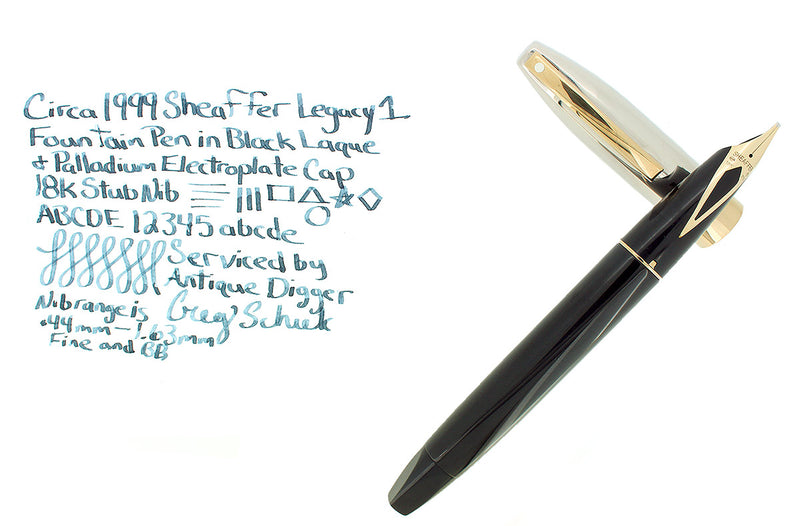 Circa 1999 Sheaffer Legacy 1
Fountain Pen in Black Laque
& Palladium Electroplate Cap
18k Stub Nib
ABCDE 12345 abcde
Serviced by
Antique Digger
Nib range is
.44mm - 1.63mm
Fine and BB
SHEAFFER